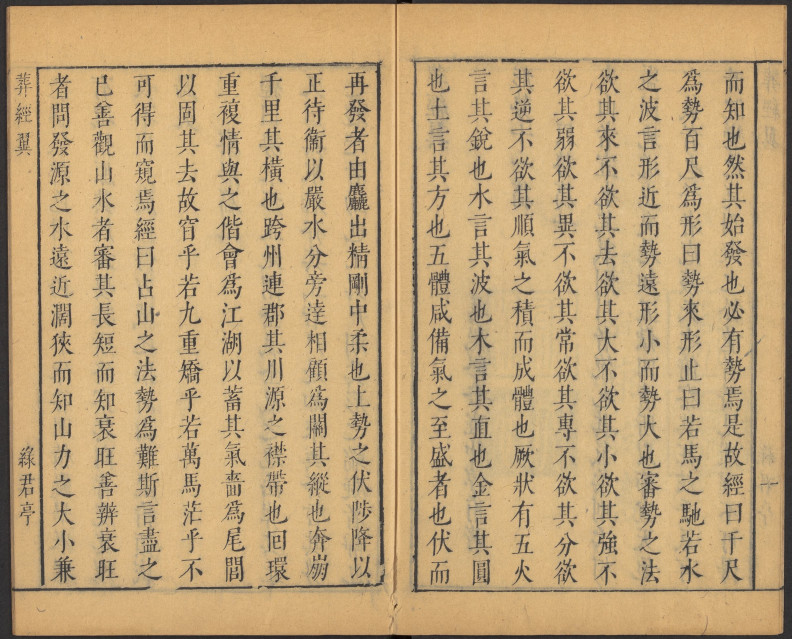 而知也然其始發也必有勢焉是故經曰千尺
爲勢百尺爲形曰勢來形止曰若馬之馳若水
之波言形近而勢遠形小而勢大也審勢之法
欲其來不欲其去欲其大不欲其小欲其強不
欲其弱欲其異不欲其常欲其專不欲其分欲
其逆不欲其順氣之積而成體也厥狀有五火
言其銳也水言其波也木言其直也金言其圓
也土言其方也五體咸備氣之至盛者也伏而
再發者由麤出精剛中柔也上勢之伏陟降以
正待衞以嚴水分旁達相顧爲關其縱也奔崩
千里其橫也跨州連郡其川源之襟帶也回環
重複情與之偕會爲江湖以蓄其氣嗇爲尾閭
以固其去故窅乎若九重矯乎若萬馬茫乎不
可得而窺焉經曰占山之法勢爲難斯言盡之
已善觀山水者審其長短而知衰旺善辨衰旺
者問發源之水遠近濶狹而知山力之大小兼
葬經翼
綠君亭